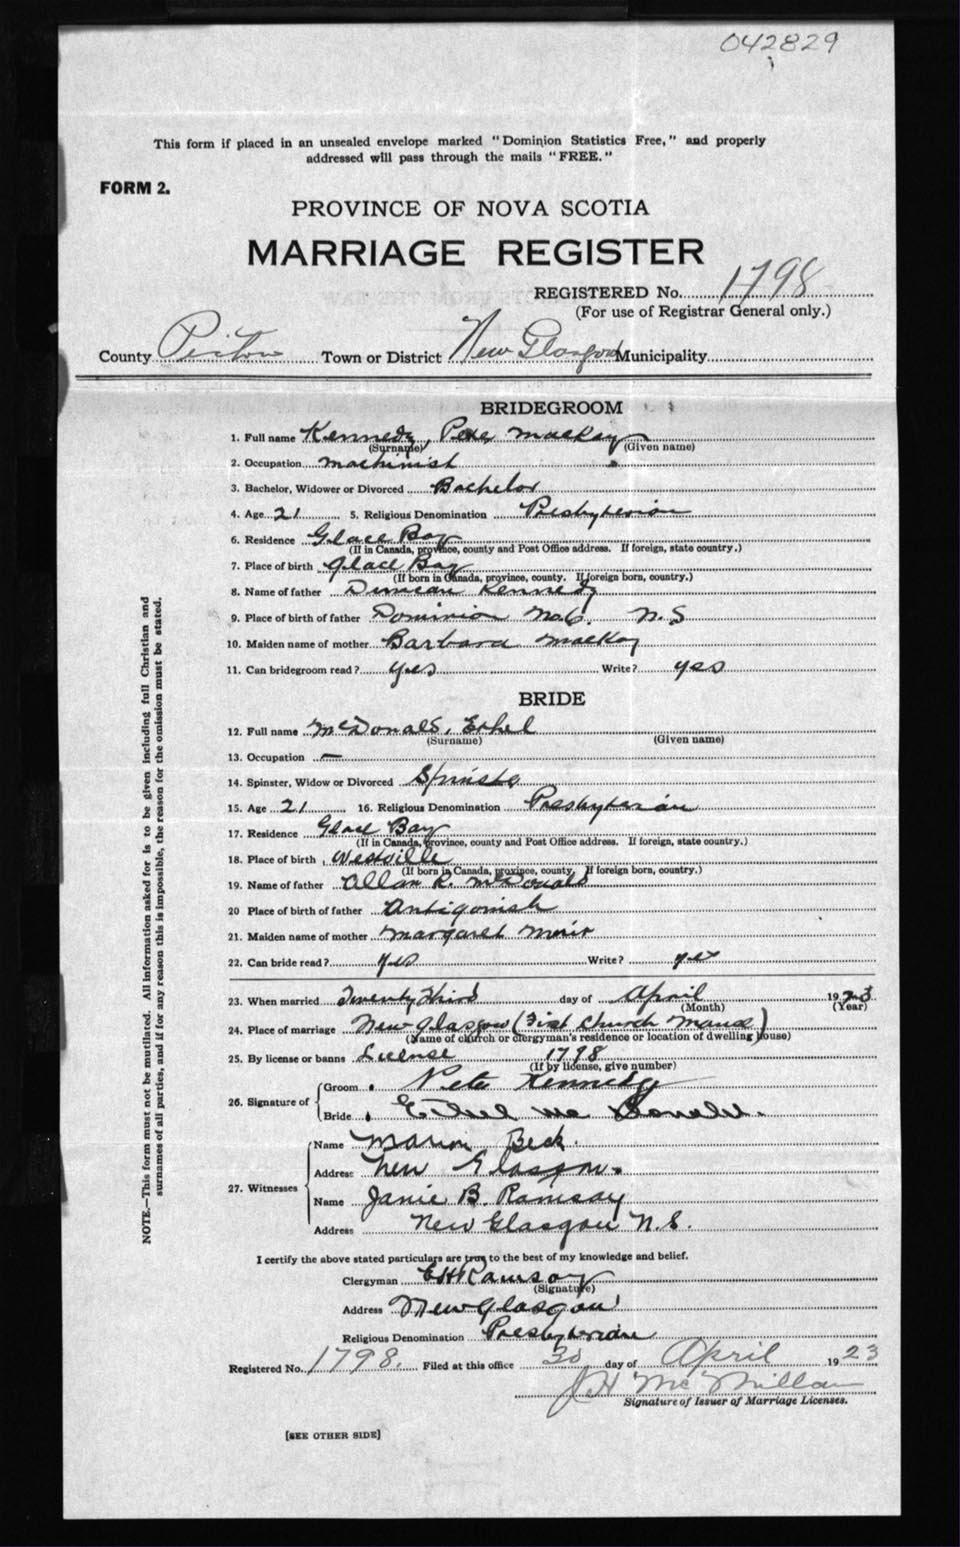 042829
This form if placed in an unsealed envelope marked "Dominion Statistics Free," and properly
addressed will pass through the mails "FREE."
FORM 2.
PROVINCE OF NOVA SCOTIA
MARRIAGE REGISTER
REGISTERED No. 1798
(For use of Registrar General only.)
County Pictou Town or District New Glasgow Municipality
BRIDEGROOM
1. Full name Kennedy, Peter MacKay
(Surname) (Given name)
2. Occupation Machinist
3. Bachelor, Widower or Divorced Bachelor
4. Age 21 5. Religious Denomination Presbyterian
6. Residence Glace Bay
(If in Canada, province, county and Post Office address. If foreign, state country.)
7. Place of birth Glace Bay
(If born in Canada, province, county. If foreign born, country.)
8. Name of father Duncan Kennedy
9. Place of birth of father Dominion No. 6. N.S
10. Maiden name of mother Barbara MacKay
11. Can bridegroom read? yes Write? yes
BRIDE
12. Full name McDonald, Ethel
(Surname) (Given name)
13. Occupation —
14. Spinster, Widow or Divorced Spinster
15. Age 21 16. Religious Denomination Presbyterian
17. Residence Glace Bay
(If in Canada, province, county and Post Office address. If foreign, state country.)
18. Place of birth Westville
(If born in Canada, province, county, If foreign born, country.)
19. Name of father Allan R. McDonald
20 Place of birth of father Antigonish
21. Maiden name of mother Margaret Muir
22. Can bride read? yes Write? yes
23. When married Twenty Third day of April 1923
(Month) (Year)
24. Place of marriage New Glasgow (First Church Manse)
(Name of church or clergyman's residence or location of dwelling house)
25. By license or banns License 1798
(If by license, give number)
26. Signature of
Groom Peter Kennedy
Bride Ethel Mc Donald.
27. Witnesses
Name Marion Beck.
Address New Glasgow.
Name Janie B. Ramsay
Address New Glasgow N.S.
I certify the above stated particulars are true to the best of my knowledge and belief.
Clergyman E H Ramsay
(Signature)
Address New Glasgow
Religious Denomination Presbyterian
Registered No. 1798. Filed at this office 30 day of April 1923
J H McMillan
Signature of Issuer of Marriage Licenses.
[SEE OTHER SIDE]
NOTE.—This form must not be mutilated. All information asked for is to be given including full Christian and
surnames of all parties, and if for any reason this is impossible, the reason for the omission must be stated.